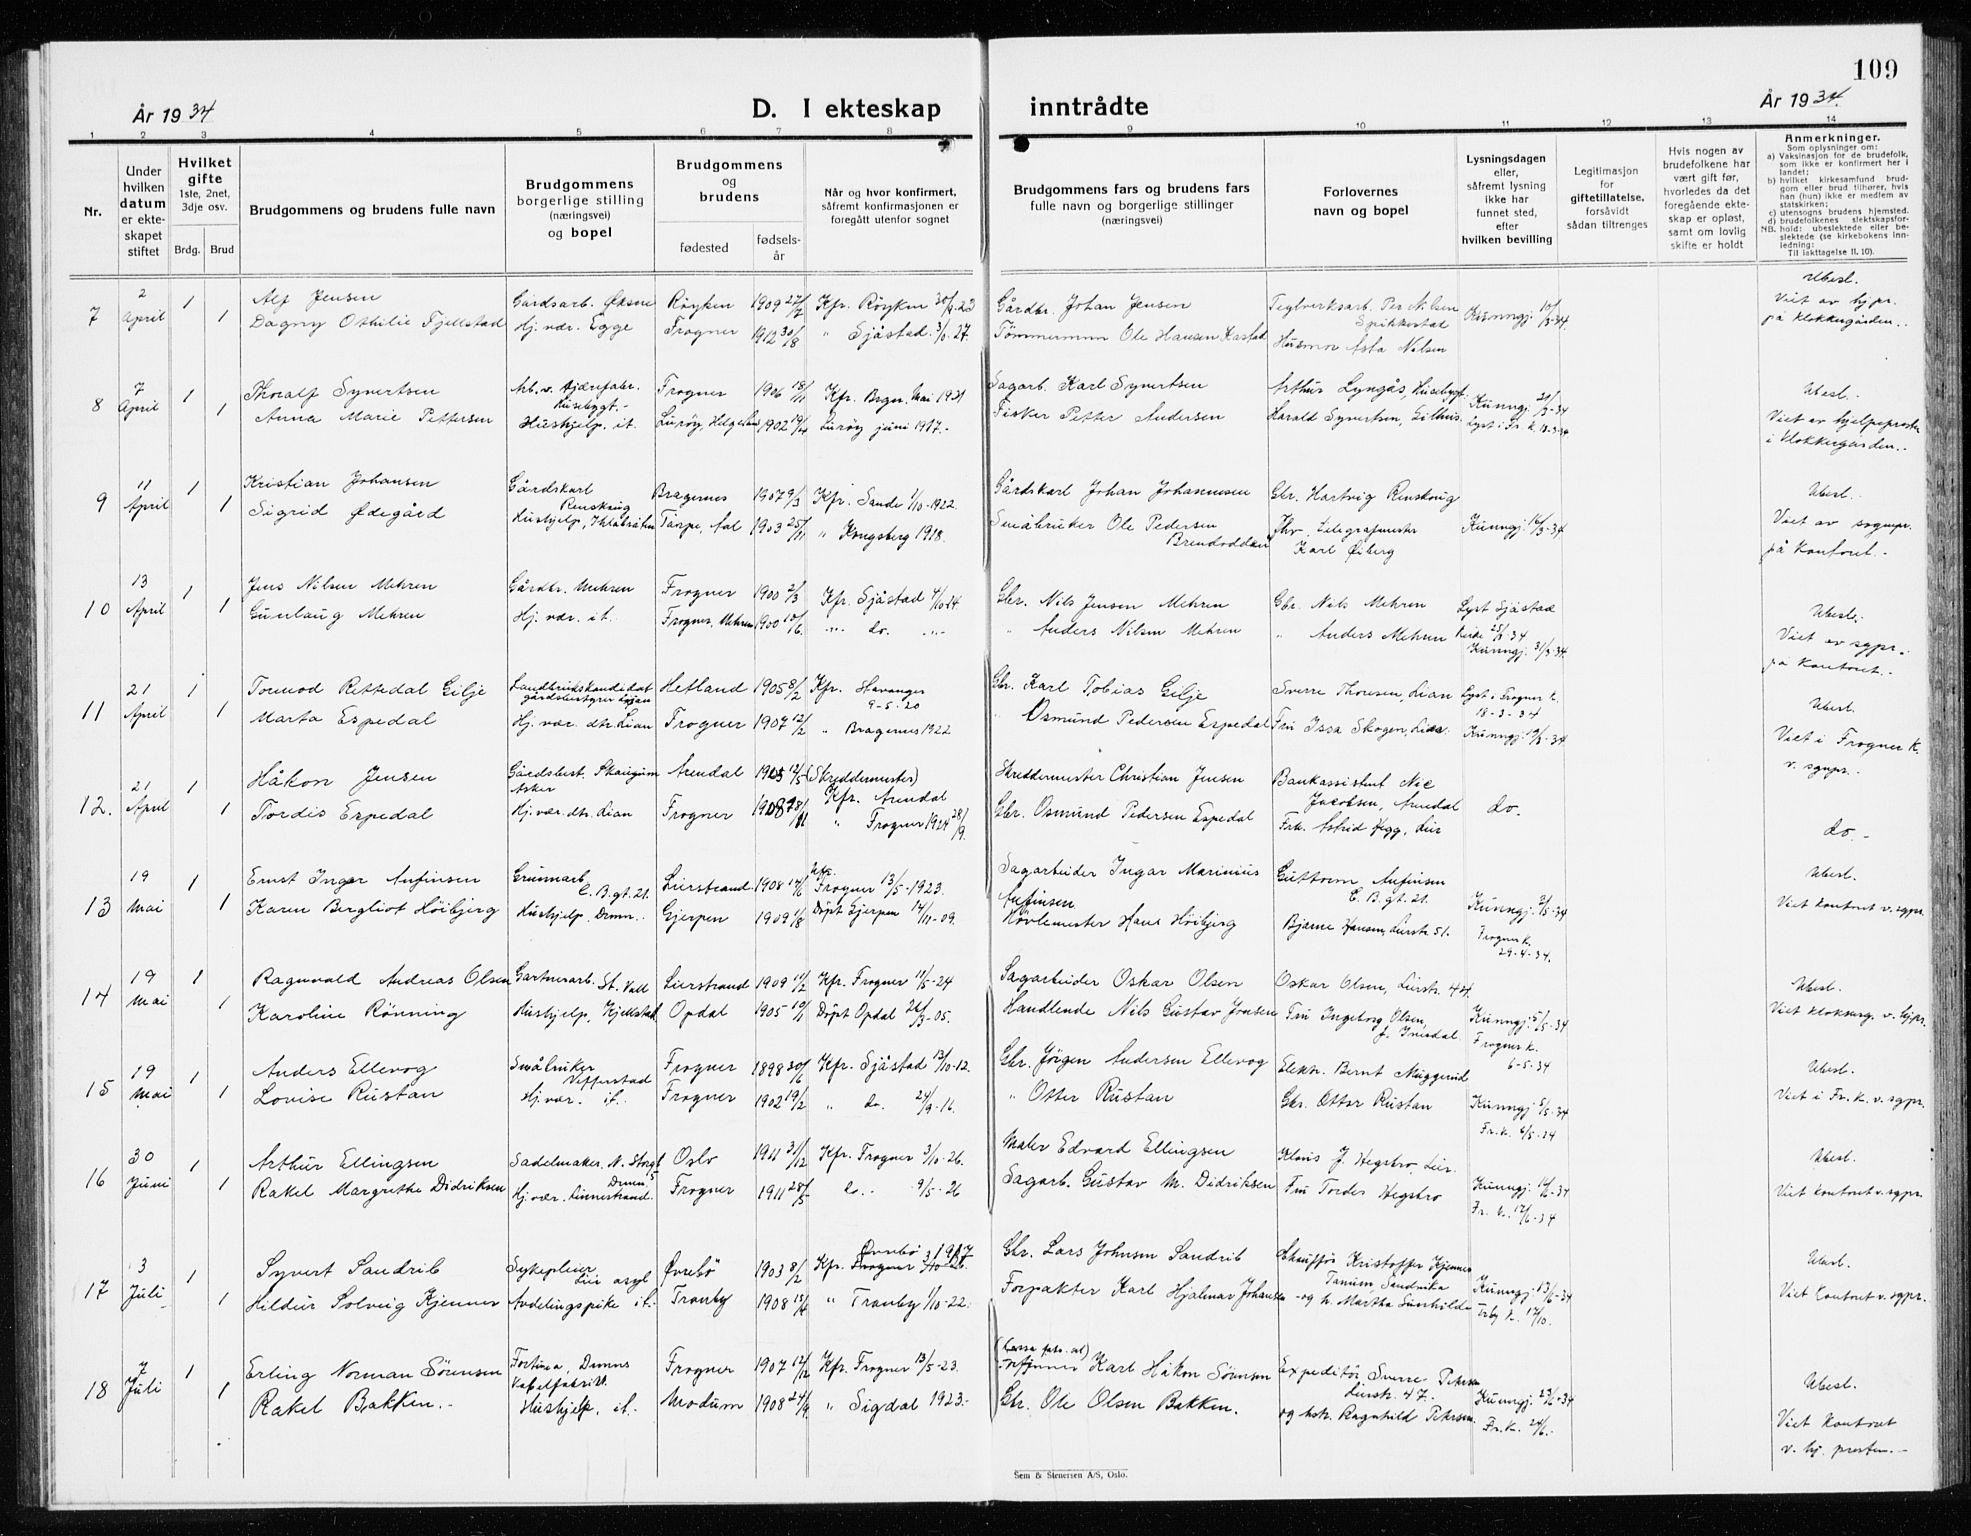 109
År 1934
D. I ekteskap inntrådte
År 1934.
1 2 3 4 5 6 7 8 9 10 11 12 13 14
Nr.
Under hvilken datum er ekteskapet stiftet
Hvilket gifte
1ste, 2net, 3dje osv.
Brdg. Brud
Brudgommens og brudens fulle navn
Brudgommens borgerlige stilling (næringsvei) og bopel
Brudgommens og brudens
fødested
fødselsår
Når og hvor konfirmert, såfremt konfirmasjonen er foregått utenfor sognet
Brudgommens fars og brudens fars fulle navn og borgerlige stillinger (næringsvei)
Forlovernes navn og bopel
Lysningsdagen eller, såfremt lysning ikke har funnet sted, efter hvilken bevilling
Legitimasjon for giftetillatelse, forsåvidt sådan tiltrenges
Hvis nogen av brudefolkene har vært gift før, hvorledes da det foregående ekteskap er opløst, samt om lovlig skifte er holdt
Anmerkninger.
Som oplysninger om:
a) Vaksinasjon for de brudefolk, som ikke er konfirmert her i landet;
b) hvilket kirkesamfund brudgom eller brud tilhører, hvis han (hun) ikke er medlem av statskirken;
c) utensogns brudens hjemsted.
d) brudefolkenes slektskapsforhold: ubeslektede eller beslektede (se kirkebokens innledning: Til iakttagelse II. 10).
NB.
7 2 April 1 Alf Jensen Gårdsarb. Øksne Røyken 1909 27/2 Kfr. Røyken Gårdbr. Johan Jensen Teglverksarb. Per Nilsen Spikkestad Kunngj. 10/3-34 Ubesl.
1 Dagny Othilie Fjellstad Hj. vær. Egge Frogner 1912 30/8 " Sjåstad 3/10-27. Tømmermann Ole Hansen Husmor Asta Nilsen Viet av hj.pr. på klokkergården.
8 7 April 1 Thoralf Syvertsen Arb. v. Husebygt. Frogner 1906 18/11 Kfr. Mai 1921 Sagarb. Karl Syvertsen Arthur Lyngås, Husebygt Kunngj. Ubesl.
1 Anna Marie Pettersen Hushjelp. it. Lurøy, Helgeland 1902 19/4 Lurøy juni 1917. Fisker Petter Andersen Harald Syvertsen, Gilhus. Lyst i Fr. k. 18-3-34 Viet av hjelpepresten i klokkergården.
9 11 April 1 Kristian Johansen Gårdskarl Renskoug Bragernes 1907 9/3 Kfr. Sande 1/10-1922. Gårdskarl Johan Johannesen Gbr. Hartvig Renskoug Ubesl.
1 Sigrid Ødegård Hushjelp, Torpe, Aal 1903 25/11 " Kongsberg 1918. Småbruker Ole Pedersen Telegrafmester Karl Øiberg Kunngj. 16/3-34 Viet av sognepr. på kontoret.
10 13 April 1 Jens Nilsen Mehren Gårdbr. Mehren Frogner 1900 2/3 Kfr. Sjåstad 4/10-14 Gbr. Nils Jensen Mehren Gbr. Nils Mehren Lyst Sjåstad kirke Ubesl.
1 Gunlaug Mehren Hj. vær. it. Frogner, Mehren 1900 10/6. " do. " " Anders Nilsen Mehren " Anders Mehren Kunngj. 31/3-34. Viet av sgpr. på kontoret.
11 21 April 1 Tormod Rettedal Gilje Landbrukskandidat gårdsbestyrer Lian Hetland 1905 8/2 Kfr. Stavanger 9-5-20 Gbr. Karl Tobias Gilje Sverre Thoresen, Lian Lyst i Frogner k. 18-3-34 Ubesl.
1 Marta Espedal Hj. vær. dtr. Lian Frogner 1907 12/2 " Bragernes 1922 Osmund Pedersen Espedal Fru Issa Skogen, Lian. Kunngj. Viet i Frogner k. v. sgnpr.
12. 21 April 1 Håkon Jensen Gårdsbest. Skaugum Asker Arendal 1905 12/5 (Skreddermester) Kfr. Arendal Skreddermester Christian Jensen Bankassistent Nic Jacobsen, Arendal do.
1 Tordis Espedal Hj. vær. dtr. Lian Frogner 1908 " Frogner 1924 28/9. Gbr. Osmund Pedersen Espedal Frk. Astrid Hegg, Lier do.
13 19 mai 1 Ernst Ingar Anfinsen Grunnarb. C. B. gt. 21. Lierstrand 1908 14/6 Kfr. Frogner 13/5-1923. Sagarbeider Ingar Marinius Anfinsen Guttorm Anfinsen C. B. gt. 21. Ubesl.
1 Karen Bergliot Höibjerg Hushjelp Drmn. Gjerpen 1909 1/8 Döpt Gjerpen 14/11-09. Høvlemester Hans Höibjerg Bjarne Hansen, Lierstr. 51. Kunngj. Frogner k. 29-4-34. Viet kontoret v. sgpr.
14 19 mai 1 Ragnvald Andreas Olsen Gartnerarb. St. Vall Lierstrand 1909 11/2 Kfr. Frogner 11/5-24 Sagarbeider Oskar Olsen Oskar Olsen, Lierstr. 44. Ubesl.
1 Karoline Rönning Hushjelp, Kjellstad Opdal 1905 19/1 Döpt Opdal 26/3-05. Handlende Nils Gustav Jonsen Fru Ingeborg Olsen, Kunngj. 5/5-34 Frogner k. 6-5-34 Viet klokkerg. v. hj.pr.
15 19 mai 1 Anders Ellevog Småbruker Vefferstad Frogner 1898 30/6 Kfr. Sjåstad 13/10-12. Gbr. Jörgen Andersen Ellevog Elektr. Bernt Muggerud Ubesl.
1 Lovise Rustan Hj. vær. it. Frogner 1902 19/2 " do. 24/9-16. " Otter Rustan Gbr. Otter Rustan Kunngj. 5/5-34 Fr. k. 6/5-34 Viet i Fr. k. v. sgpr.
16 30 Juni 1 Arthur Ellingsen Sadelmaker. N. Storgt. Drmn. Oslo 1911 31/12 Kfr. Frogner 3/10-26. Maler Edvard Ellingsen Klaus J. Hegsbro, Lier. Ubesl.
1 Rakel Margrethe Didriksen Hj. vær. Linnestrand. Frogner 1911 28/5 do. 9/5-26 Sagarb. Gustav M. Didriksen Fru Tordes Hegsbro Kunngj. 14/6-34 Fr. k. 17/6-34 Viet kontoret v. sgpr.
17 3 Juli 1 Syvert Sandrib Sykepleier Lier asyl Øvrebö 1903 8/2 Kfr. Øvrebö 1917 Gbr. Lars Johnsen Sandrib Chauffør Kristoffer Kjenner Tanum, Sandvika Ubesl.
1 Hildur Solveig Kjenner Avdelingspike it. Tranby 1908 " Tranby 1/10-22. Forpakter Karl Hjalmar Johansen og h. Martha Kunngj. 13/6-34 Trby k. 17/10. Viet kontoret v. sgpr.
18 7 Juli 1 Erling Norman Sörensen Frogner 1907 12/12 Kfr. Frogner 13/5-23. Karl Håkon Sörensen Expeditör Sverre Petersen Lierstr. 47. Ubesl.
1 Rakel Bakken. Hushjelp, it. Modum 1908 24/4 " Sigdal 1923. Gbr. Ole Olsen Bakken. og hstr. Ragnhild Petersen. Kunngj. 23/6-34 Fr. k. 24/6. Viet kontoret v. hj. presten.
Sem & Stenersen A/S, Oslo.